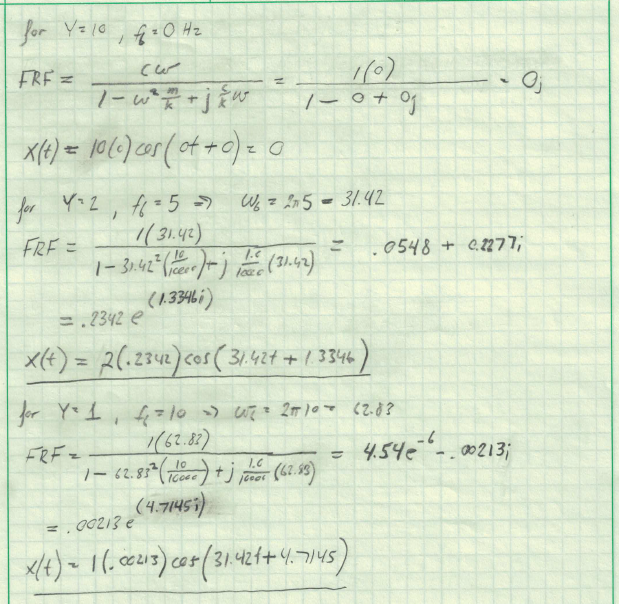 for Y=10 , f_b=0 Hz
FRF = cω / (1 - ω² m/k + j c/k ω) = 1(0) / (1 - 0 + 0j) = 0j
X(t) = 10(0) cos(0t + 0) = 0
for Y=2 , f_b = 5 => ω_b = 2π5 = 31.42
FRF = 1(31.42) / (1 - 31.42² (10/10000) + j 1.0/10000 (31.42)) = .0548 + 0.2277i
= .2342 e^(1.3346i)
X(t) = 2(.2342) cos(31.42t + 1.3346)
for Y=1 , f_b = 10 => ω_b = 2π10 = 62.83
FRF = 1(62.83) / (1 - 62.83² (10/10000) + j 1.0/10000 (62.83)) = 4.54e^-6 - .00213i
= .00213 e^(4.7145i)
X(t) = 1(.00213) cos(31.42t + 4.7145)